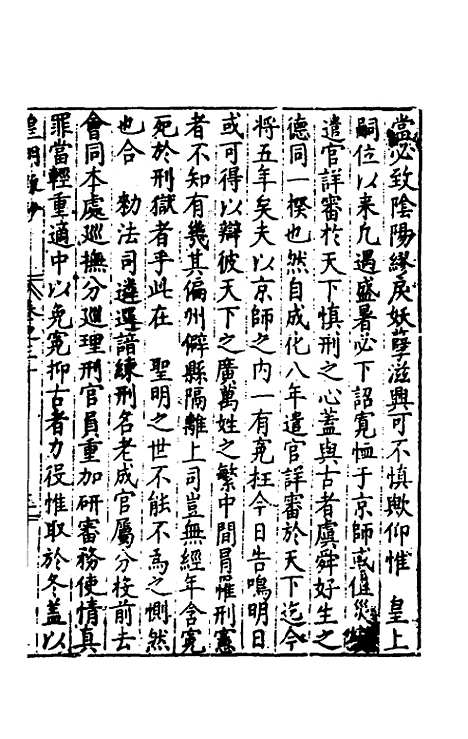 當必致陰陽繆戾妖孽滋興可不慎歟仰惟　皇上
嗣位以来凡遇盛暑必下詔寛恤于京師或值災
遣官詳審於天下慎刑之心蓋與古者虞舜好生之
德同一揆也然自成化八年遣官詳審於天下迄今
将五年矣夫以京師之内一有寃枉今日告鳴明日
或可得以辯彼天下之廣萬姓之繁中間罹刑憲
者不知有幾其偏州僻縣隔離上司豈無經年含寃
死於刑獄者乎此在　聖明之世不能不為之惻然
也合　勑法司遴選諳練刑名老成官屬分投前去
會同本處巡撫分巡理刑官員重加研審務使情真
罪當輕重適中以免寃抑古者力役惟取於冬蓋以
皇明